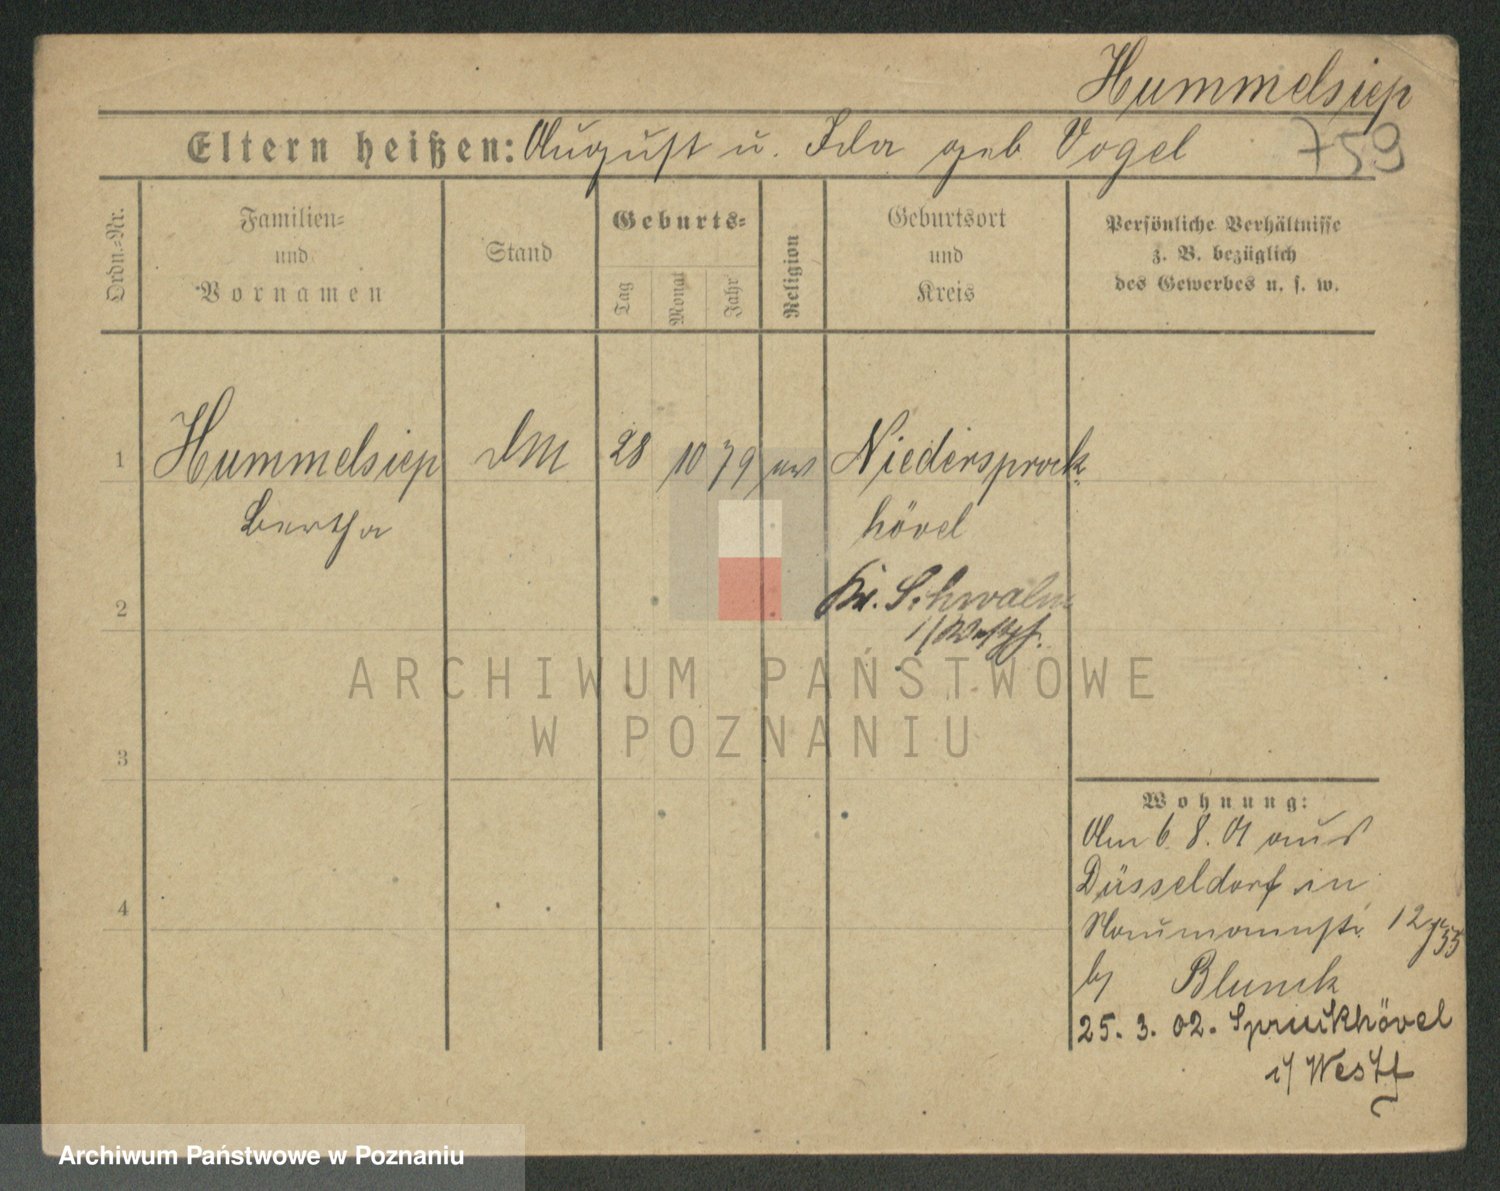 Hummelsiep
Eltern heißen: August u. Ida geb Vogel 759
Ordn.=Nr.
Familien=
und
Vornamen
Stand
Geburts=
Tag
Monat
Jahr
Religion
Geburtsort
und
Kreis
Persönliche Verhältnisse
z. B. bezüglich
des Gewerbes u. s. w.
1 Hummelsiep 28 10 79 Niedersprock
Bertha hövel
2 Kr. Schwalm
i/Westph.
ARCHIWUM PAŃSTWOWE
W POZNANIU
3
4
Wohnung:
Am 6. 8. 01 aus
Düsseldorf in
Naumannstr. 12
by Blunck
25. 3. 02. Sprockhövel
i/ Westf
Archiwum Państwowe w Poznaniu